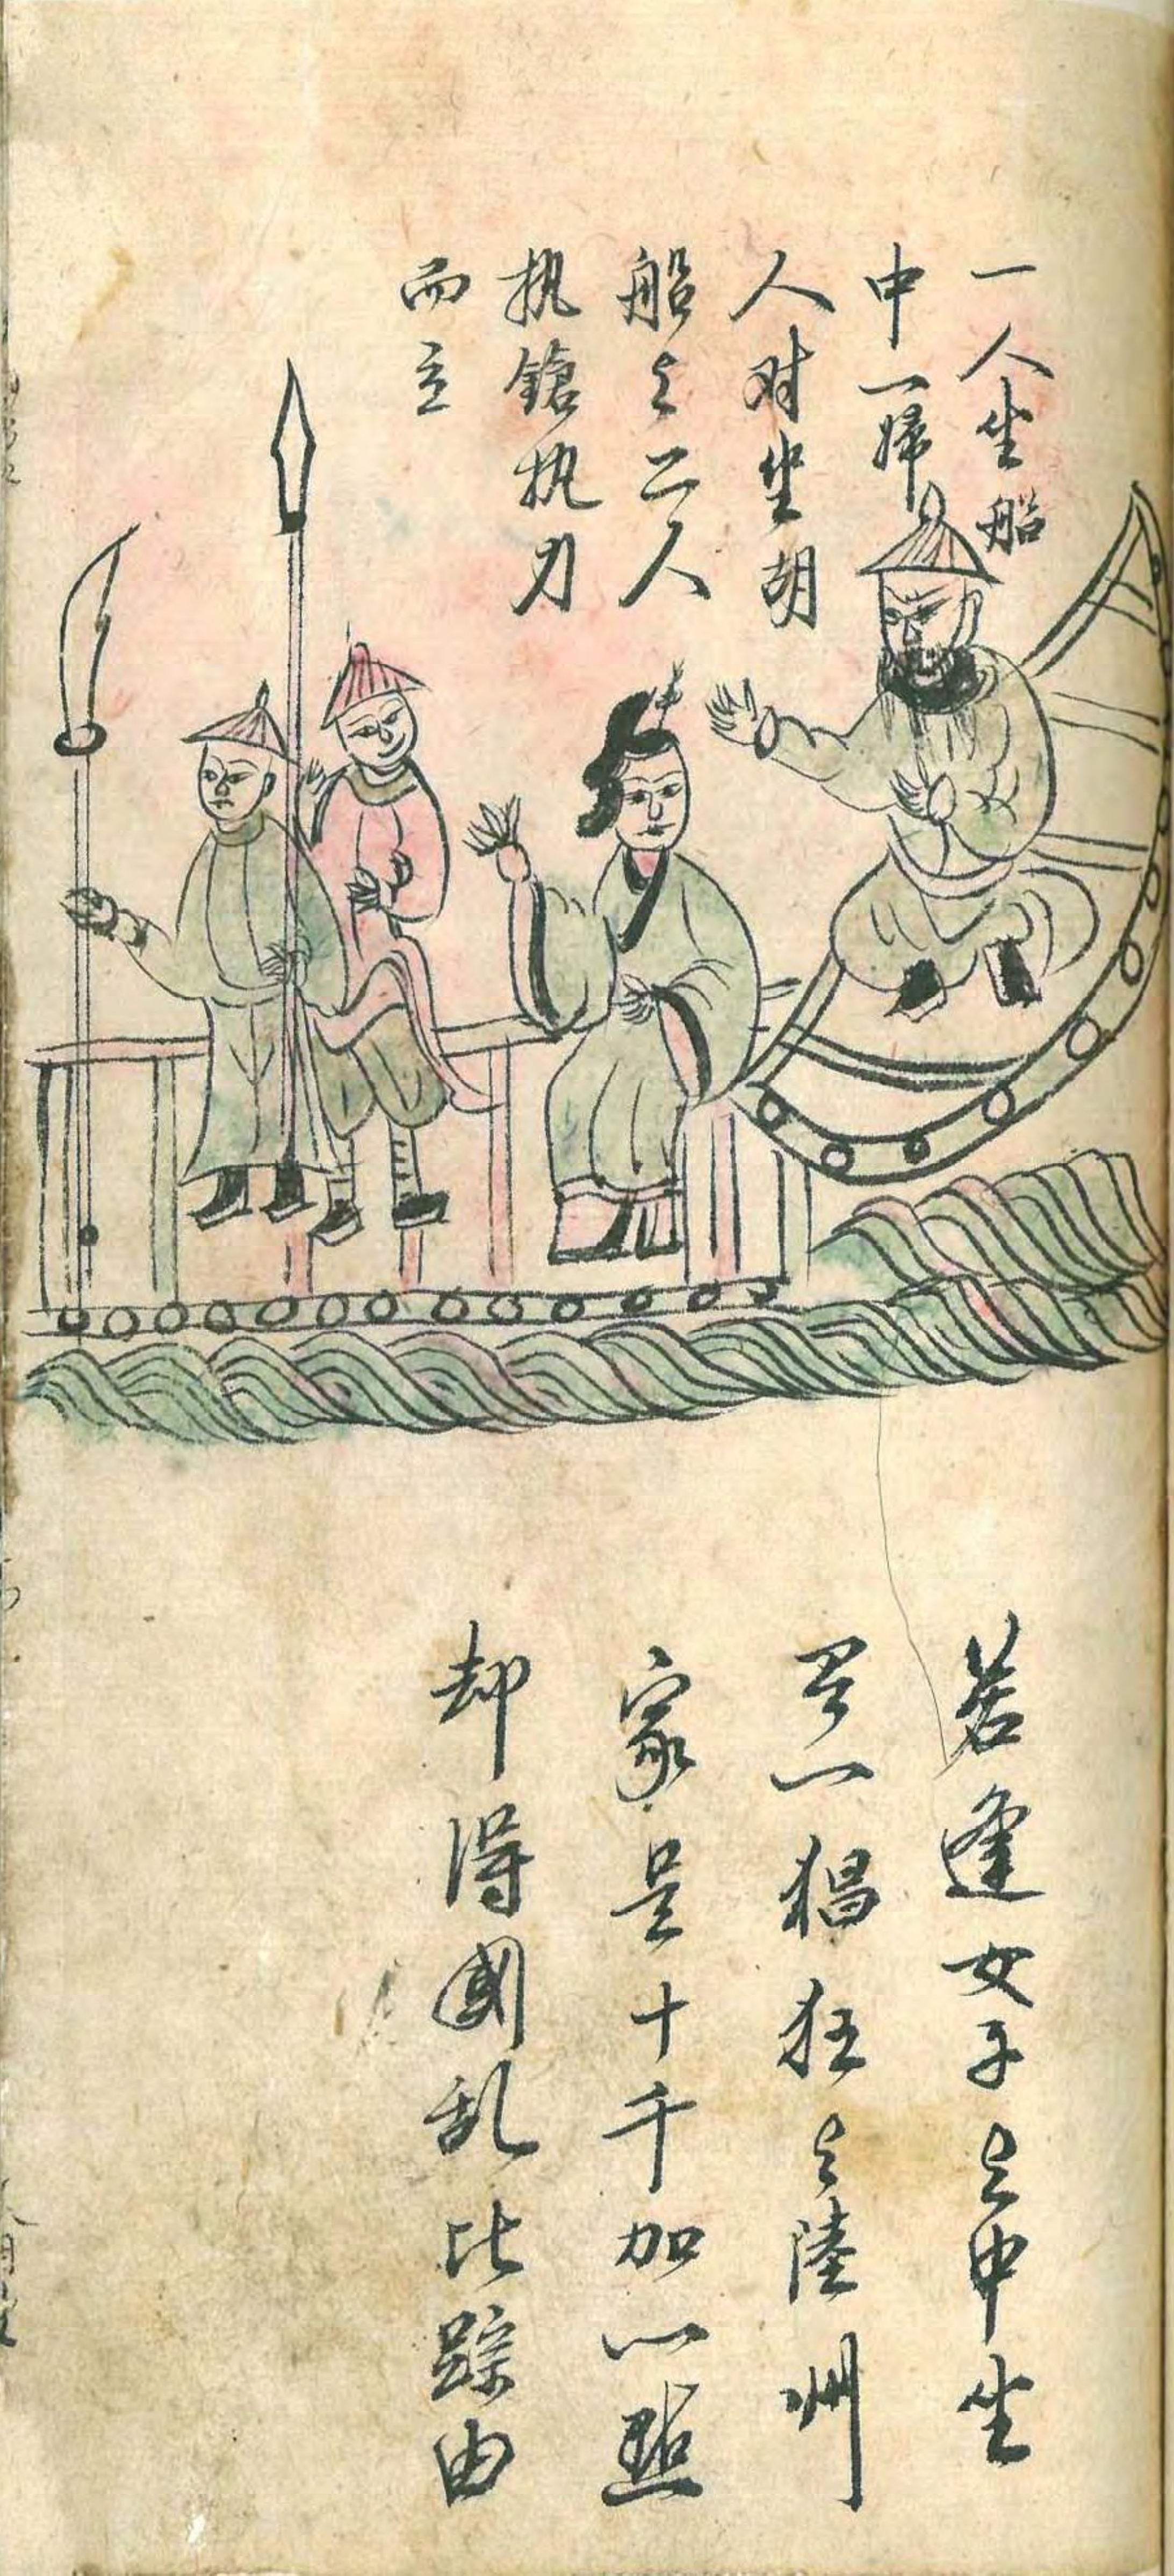 一人坐船
中一婦
人对坐胡
船上二人
执鎗执刀
而立
若逢女子上申坐
一猖狂上陸州
家是十千加點
却得國乱比踪由